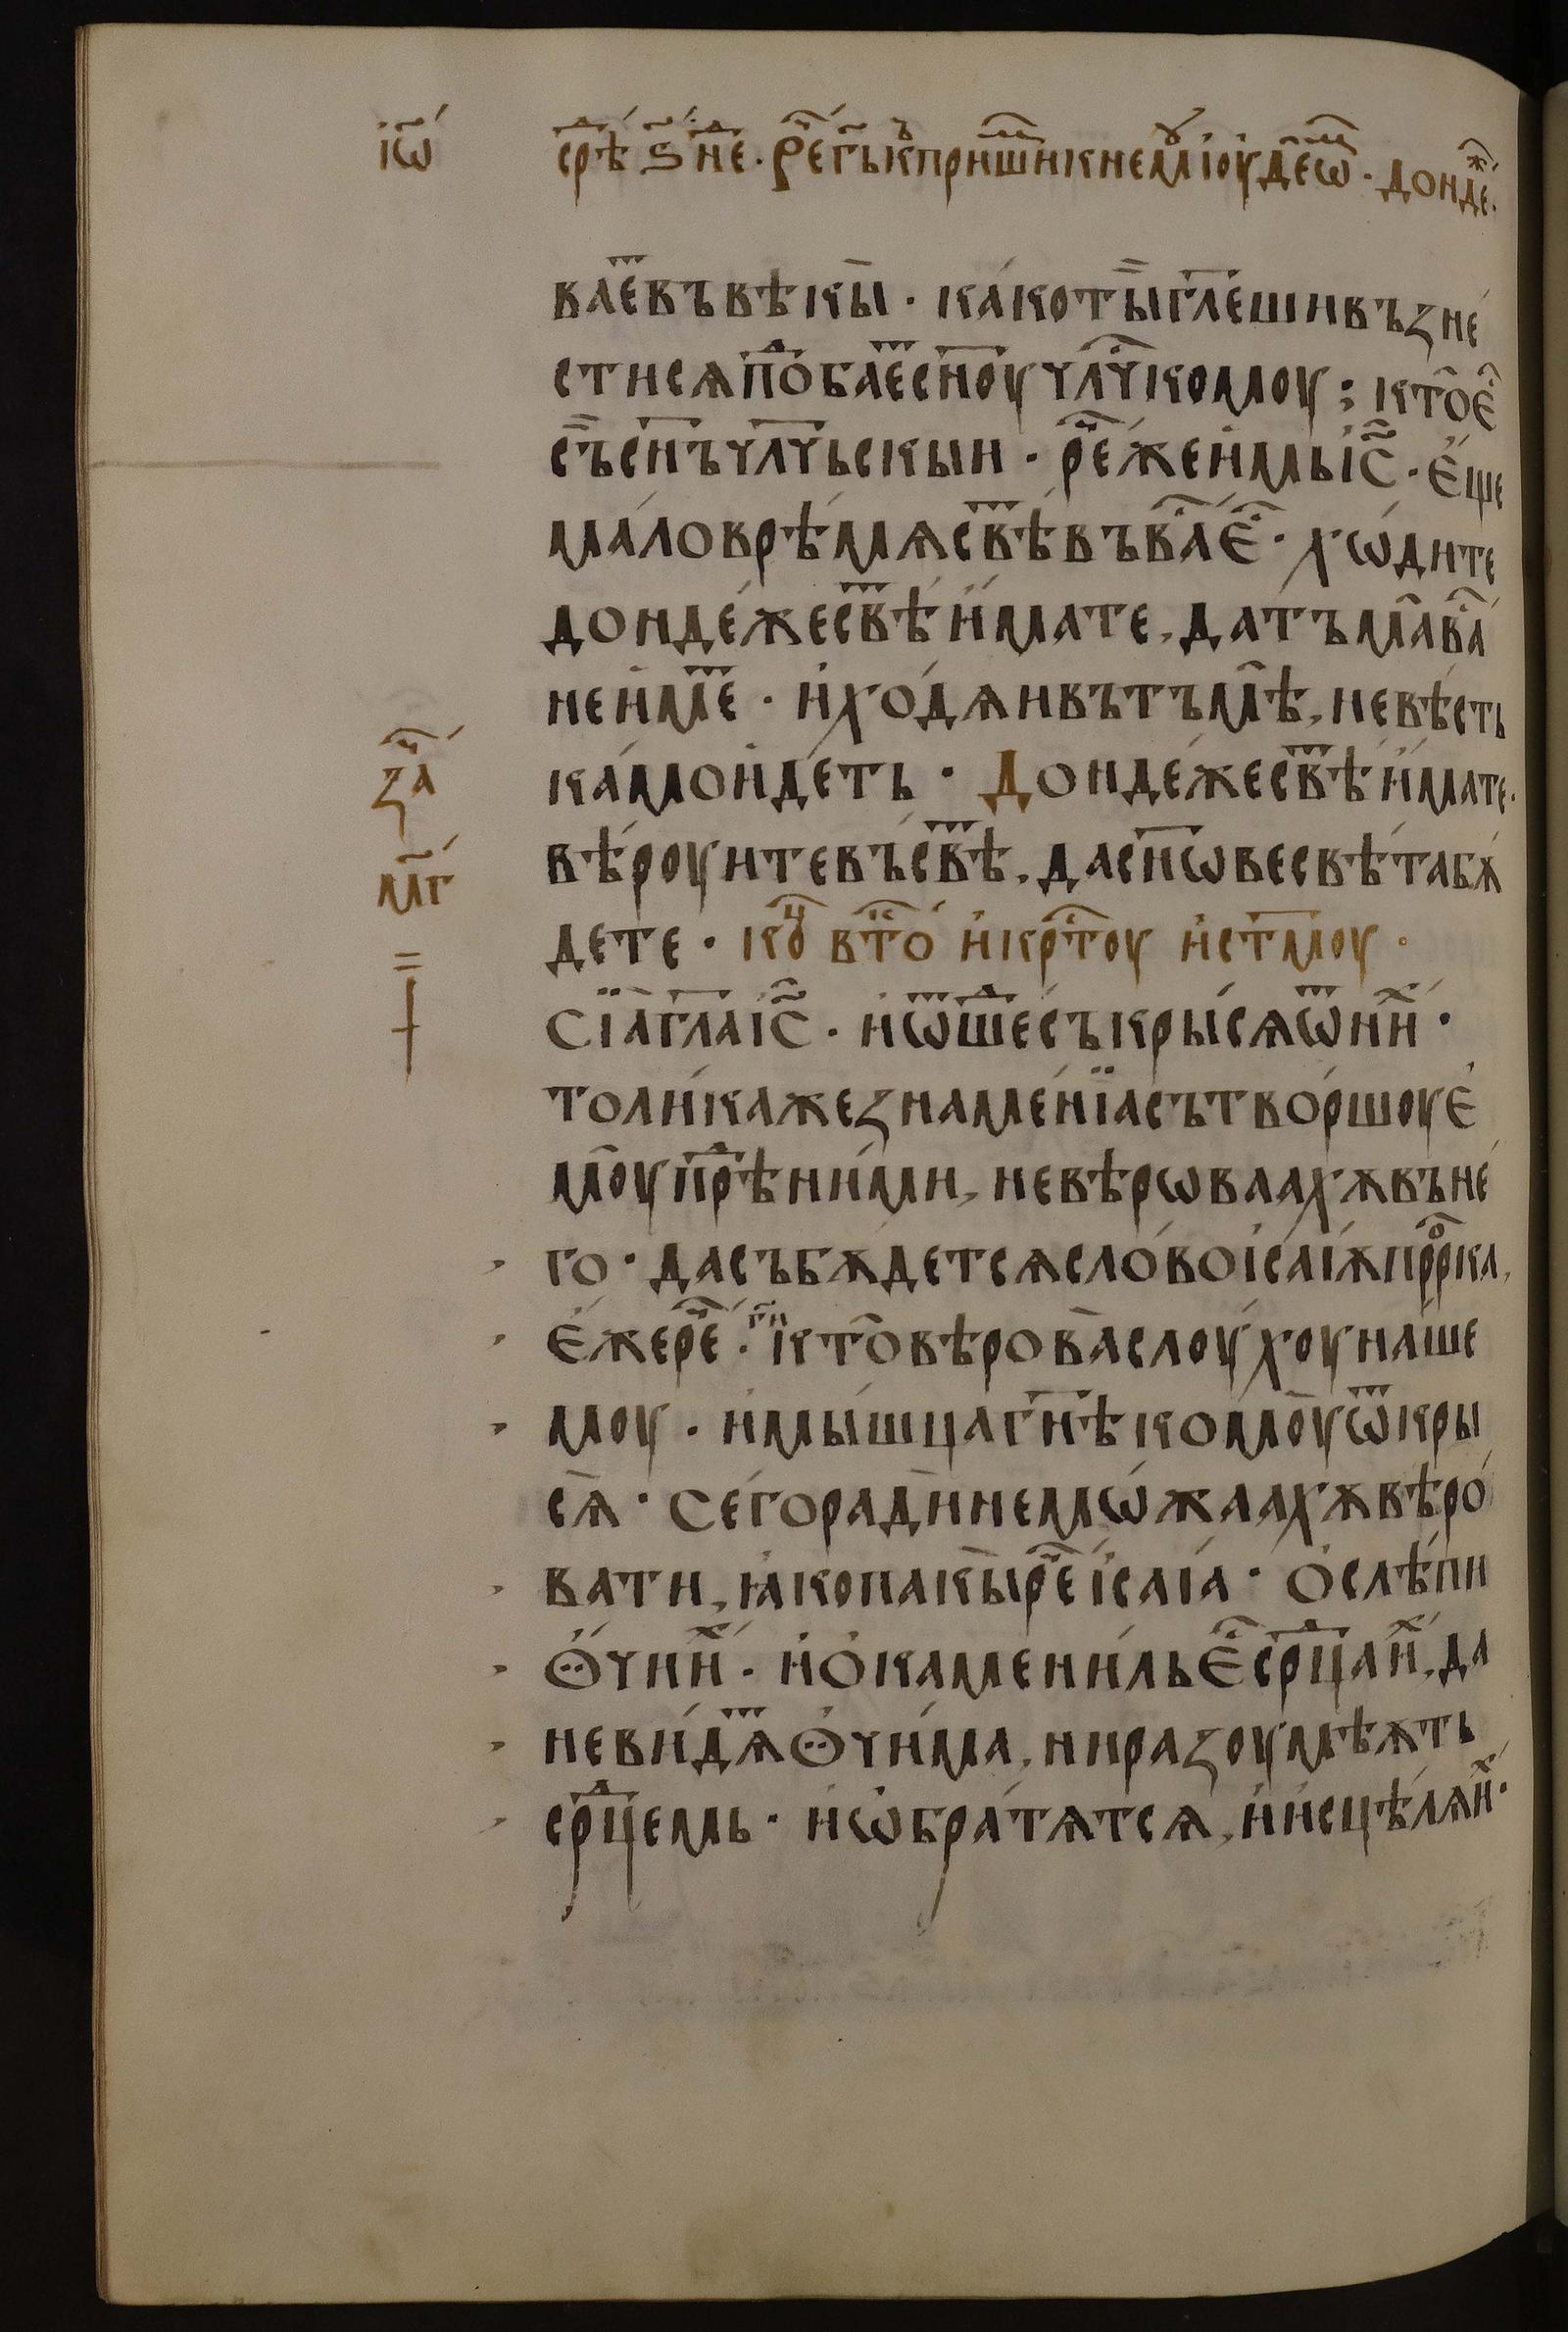 і҆ѡ҃ срⷣѣ ѕ҃ нⷣе · рⷱ҇е г҃ь къ пришⷣⷨи к немꙋ і҆оудеѡⷨ · дондеⷤ ·
ваеⷮ въ вѣкы · ка́ко ты гл҃еши възне́
стисѧ поⷣбаеⷮ сн҃оу чл҃чⷭ҇комоу ; кто е҆ⷭ҇
съ сн҃ъ чл҃чьскыи · рⷱ҇е́ же и҆мь і҆с҃ · є҆́ще
ма́ло врѣ́мѧ свѣⷮ въ ваⷭ҇ є҆ⷭ҇ · хѡ́дите
донде́же свѣⷮ и҆́мате , да тъма ваⷭ҇
не и҆меⷮ · и҆ ходѧи въ тъмѣ , не вѣ́сть
ка́мо и҆де́ть · Донде́же свѣⷮ и҆́мате ·
заⷱ҇
вѣ́роуите въ свѣⷮ , да сн҃ѡве свѣ́та бѫ
м҃г
дете · коⷰ҇ вⷮо́ⷬ҇ и҆ крⷭ҇тоу и҆ ст҃моу ·
Сїа̀ гл҃а і҆с҃ · и҆ ѿшеⷣ съкры́сѧ ѿ ниⷯ ·
толи́ка же знаме́нїа сътво́ршоу є҆
моу прⷣѣ ни́ми , не вѣ́рѡваахѫ въ не́
го · да събѫ́детсѧ сло́во і҆са́їѧ прⷪ҇рка ,
є҆́же рⷱ҇е · г҃и кто вѣ́рова слоу́хоу на́ше
моу · и҆ мы́шца гн҃ѣ комоу ѿкры
сѧ · Сего́ ради не мѡ́жаахѫ вѣ́ро́
вати , ꙗ҆́ко па́кы рⷱ҇е і҆са́їа · О҆слѣ́пи
ѻ҆́чи иⷯ · и҆ о҆камени́ль є҆ⷭ҇ срⷣца иⷯ , да
не ви́дѧⷮ ѻ҆чи́ма , ни разоумѣѫть
срⷣцемь · и҆ ѡ҆бра́тѧтсѧ , и҆ и҆сцѣлѧ́ иⷯ ·